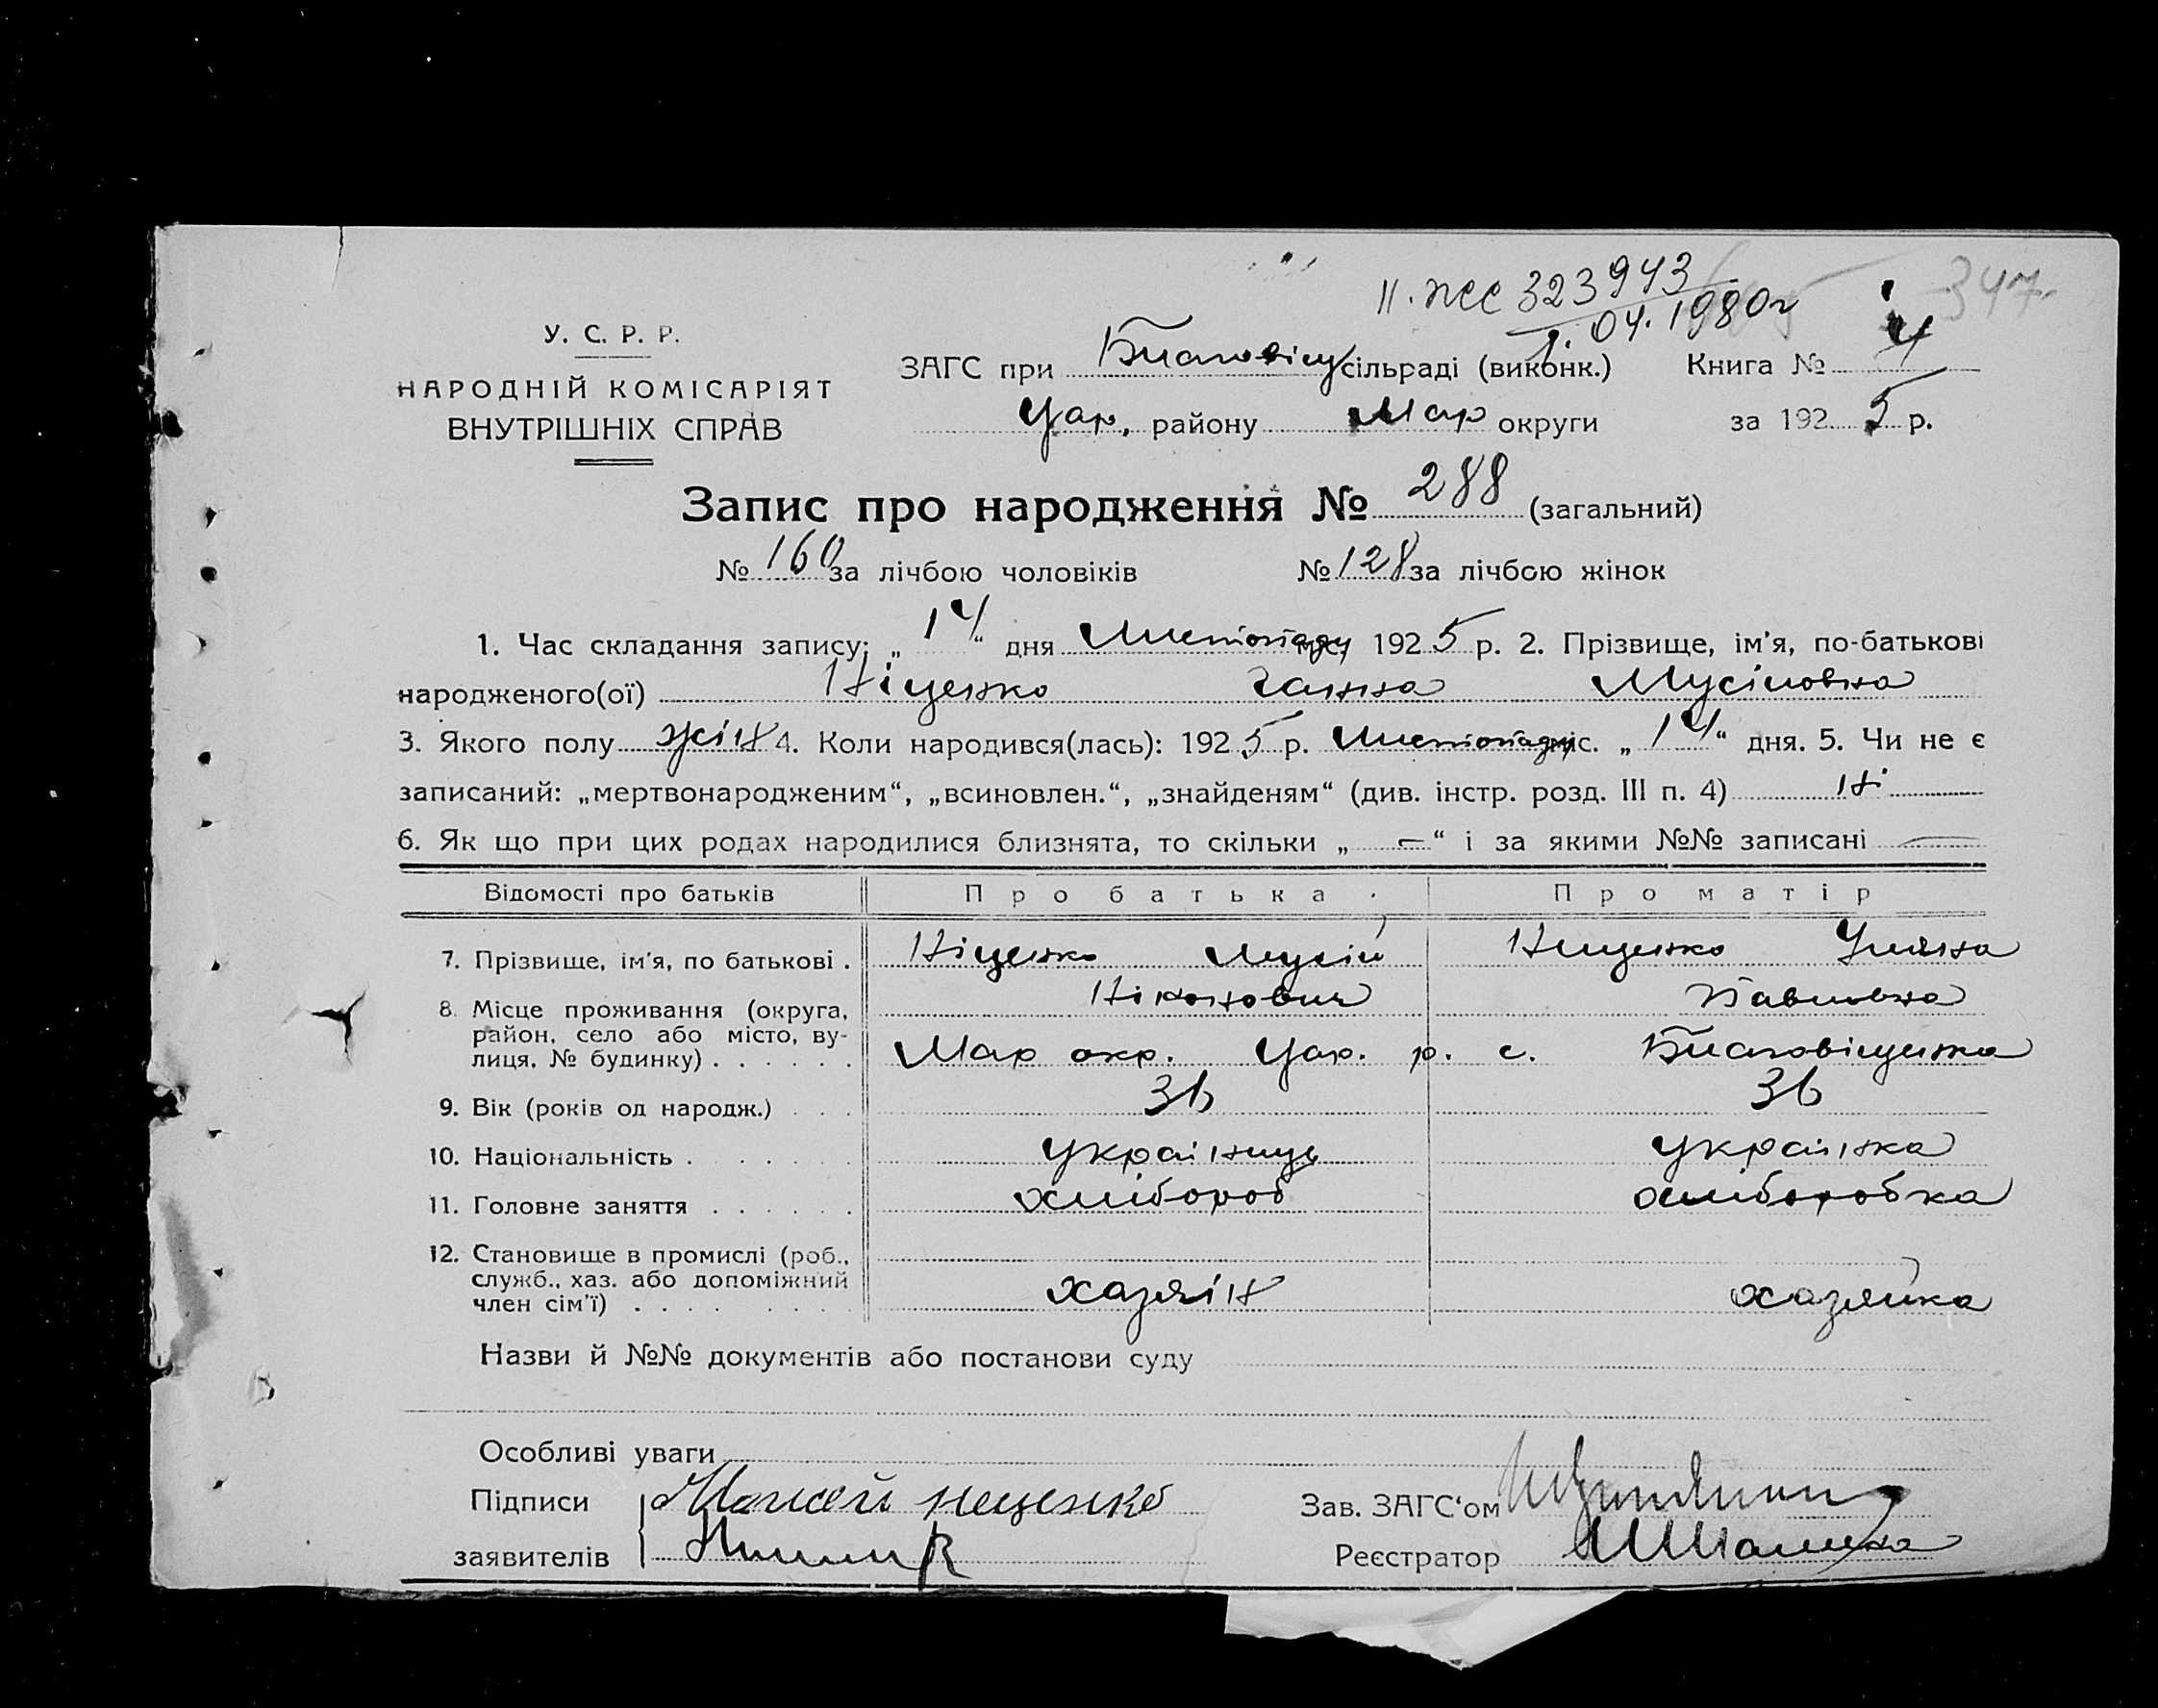 347
II. ЖС 323943
1.04.1980г
У. С. Р. Р.
НАРОДНІЙ КОМІСАРІЯТ
ВНУТРІШНІХ СПРАВ
ЗАГС при Благовіщ сільраді (виконк.) Книга № 4
Цар, району Мар округи за 1925 р.
Запис про народження № 288 (загальний)
№ 160 за лічбою чоловіків № 128 за лічбою жінок
1. Час складання запису: „14“ дня Листопаду 1925 р. 2. Прізвище, ім'я, по-батькові
народженого(ої) Ніценко Ганна Мусіловна
3. Якого полу жін 4. Коли народився(лась): 1925 р. Листопаду міс. „14“ дня. 5. Чи не є
записаний: „мертвонародженим“, „всиновлен.“, „знайденям“ (див. інстр. розд. III п. 4) Ні
6. Як що при цих родах народилися близнята, то скільки „—“ і за якими №№ записані —
Відомості про батьків Про батька Про матір
7. Прізвище, ім'я, по батькові . Ніценко Мусій Ніценко Уляна
Ніконович Павловна
8. Місце проживання (округа,
район, село або місто, ву-
лиця, № будинку) . . . . . . Мар окр. Цар. р. с. Благовіщенка
9. Вік (років од народж.) . . . 36 36
10. Національність . . . . . . . українець українка
11. Головне заняття . . . . . . хлібороб хліборобка
12. Становище в промислі (роб.,
служб., хаз. або допоміжний
член сім'ї) . . . . . . . . хазяїн хазяйка
Назви й №№ документів або постанови суду
Особливі уваги
Підписи Неценко Зав. ЗАГС'ом
заявителів Реєстратор